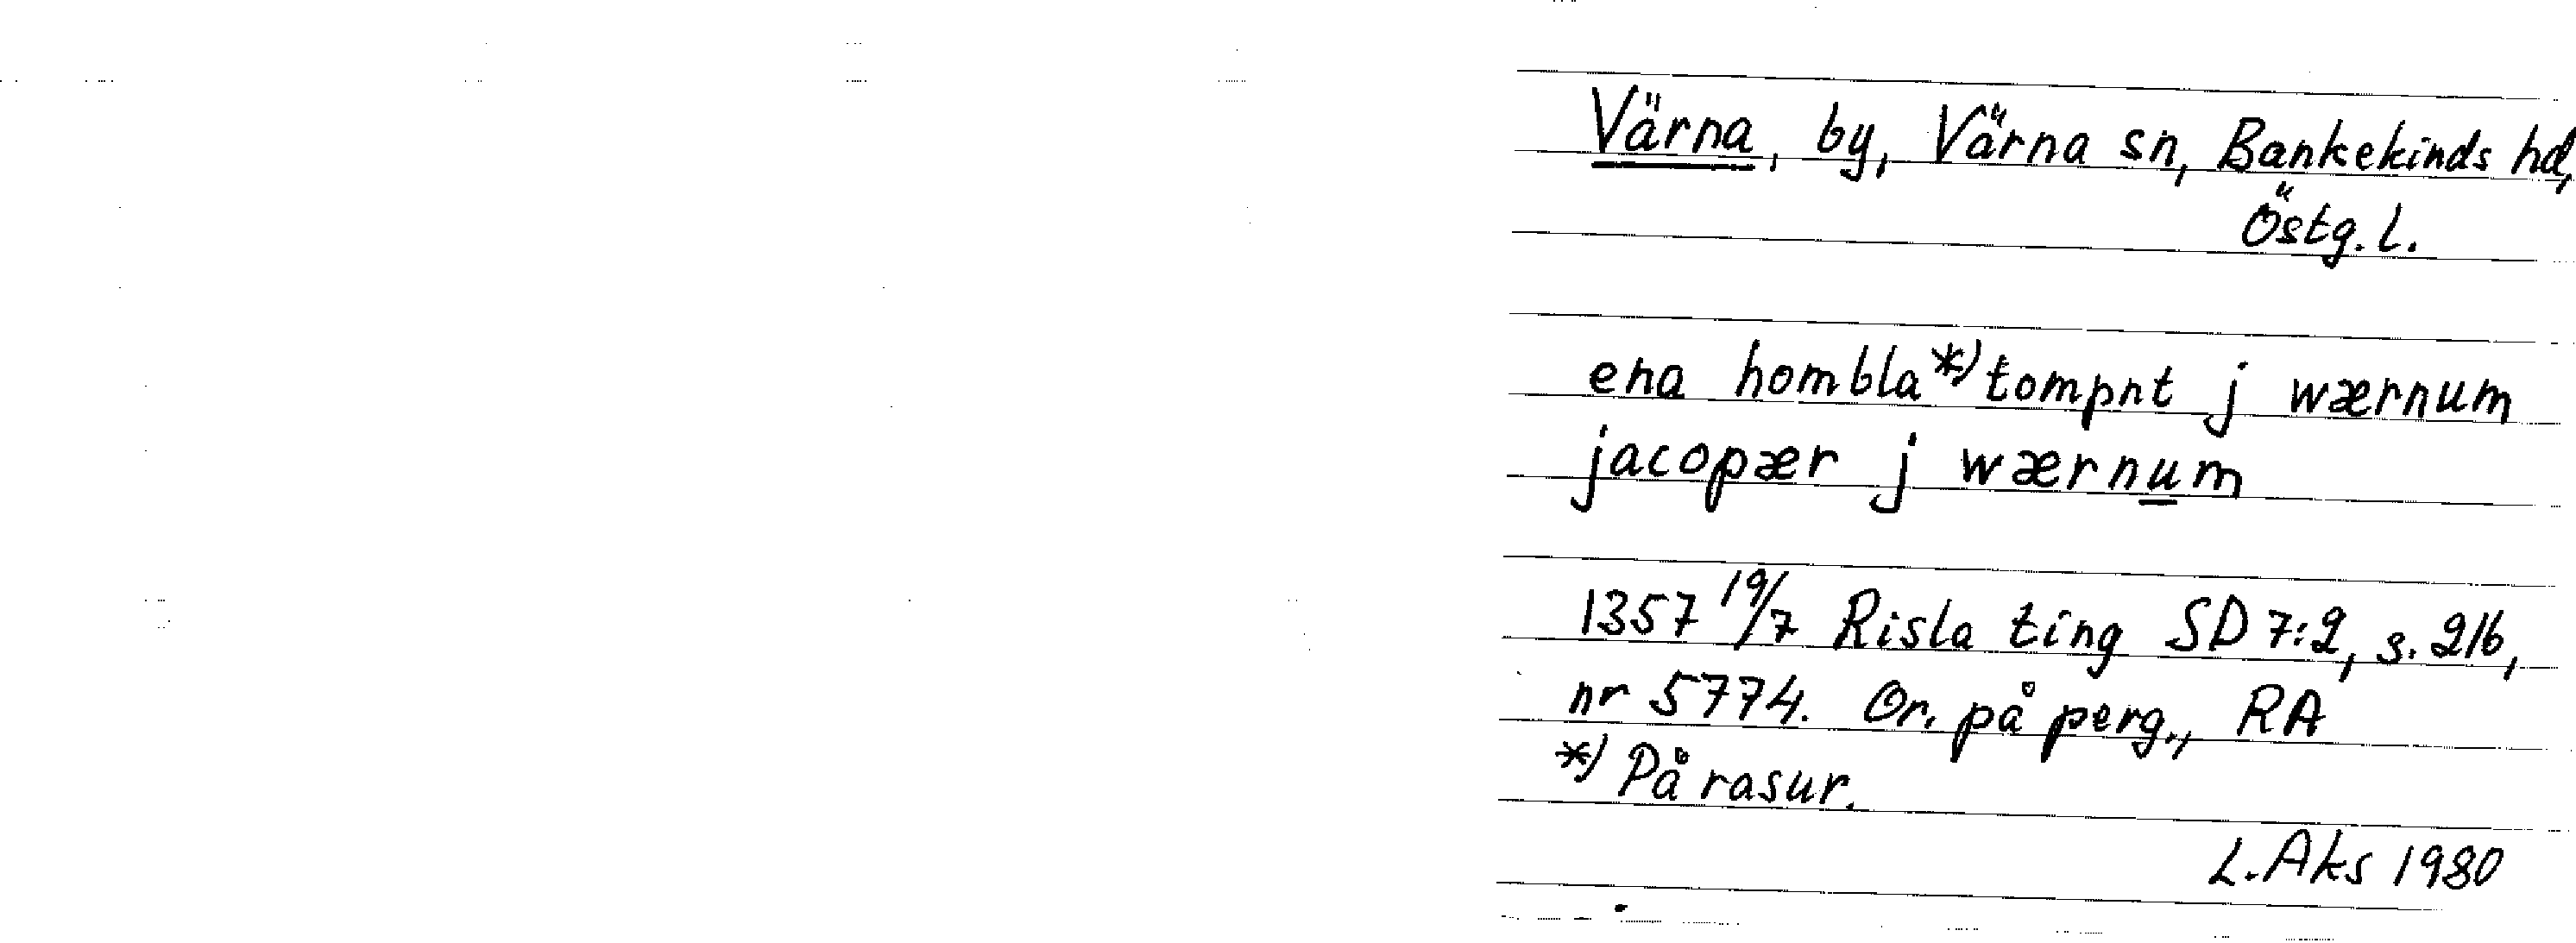 Värna, by, Värna sn, Bankekinds hd,
Östg. l.
ena hombla*) tompnt j wærnum
jacopær j wærnum
1357 19/7 Risla ting SD 7:2, s. 216,
nr 5774. Or. på perg., RA
*) På rasur.
L. Aks 1980